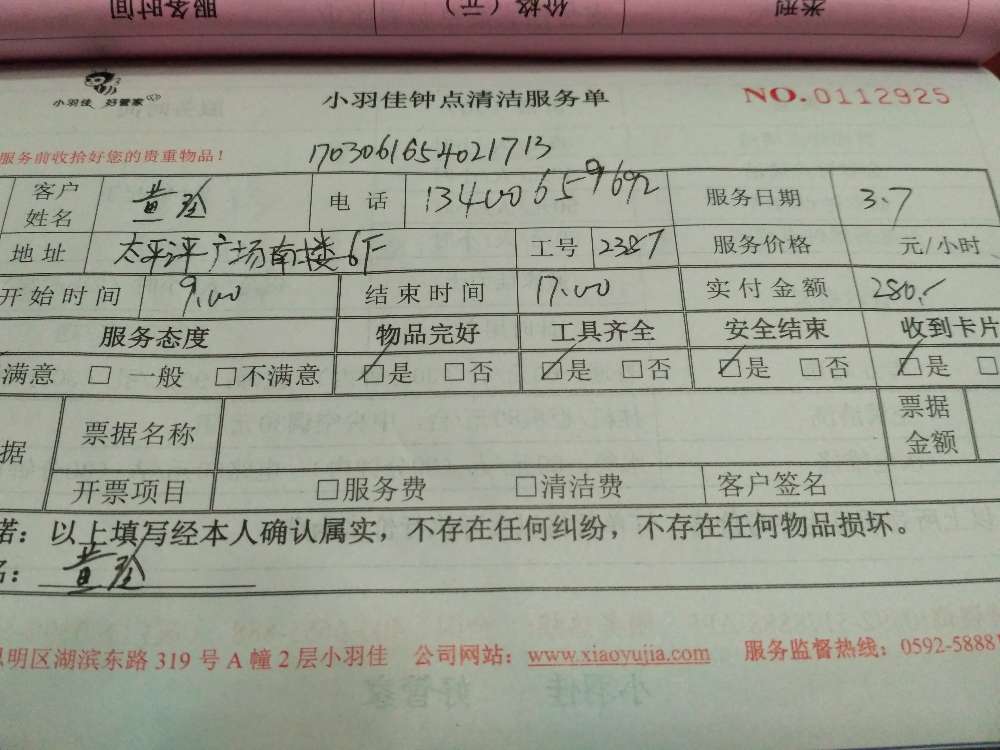 服务时间 价格（元） 类型
小羽佳 好管家 小羽佳钟点清洁服务单 NO.0112925
服务前收拾好您的贵重物品！ 1703061654021713
客户姓名 黄玲 电话 13400659692 服务日期 3.7
地址 太平洋广场南楼6F 工号 2387 服务价格 元/小时
开始时间 9.00 结束时间 17.00 实付金额 280.-
服务态度 物品完好 工具齐全 安全结束 收到卡片
满意 □ 一般 □不满意 ☑是 □否 ☑是 □否 ☑是 □否 ☑是 □
据 票据名称 票据金额
开票项目 □服务费 □清洁费 客户签名
诺：以上填写经本人确认属实，不存在任何纠纷，不存在任何物品损坏。
名：黄玲
思明区湖滨东路 319 号 A 幢 2 层小羽佳 公司网站：www.xiaoyujia.com 服务监督热线：0592-5888
小羽佳 好管家